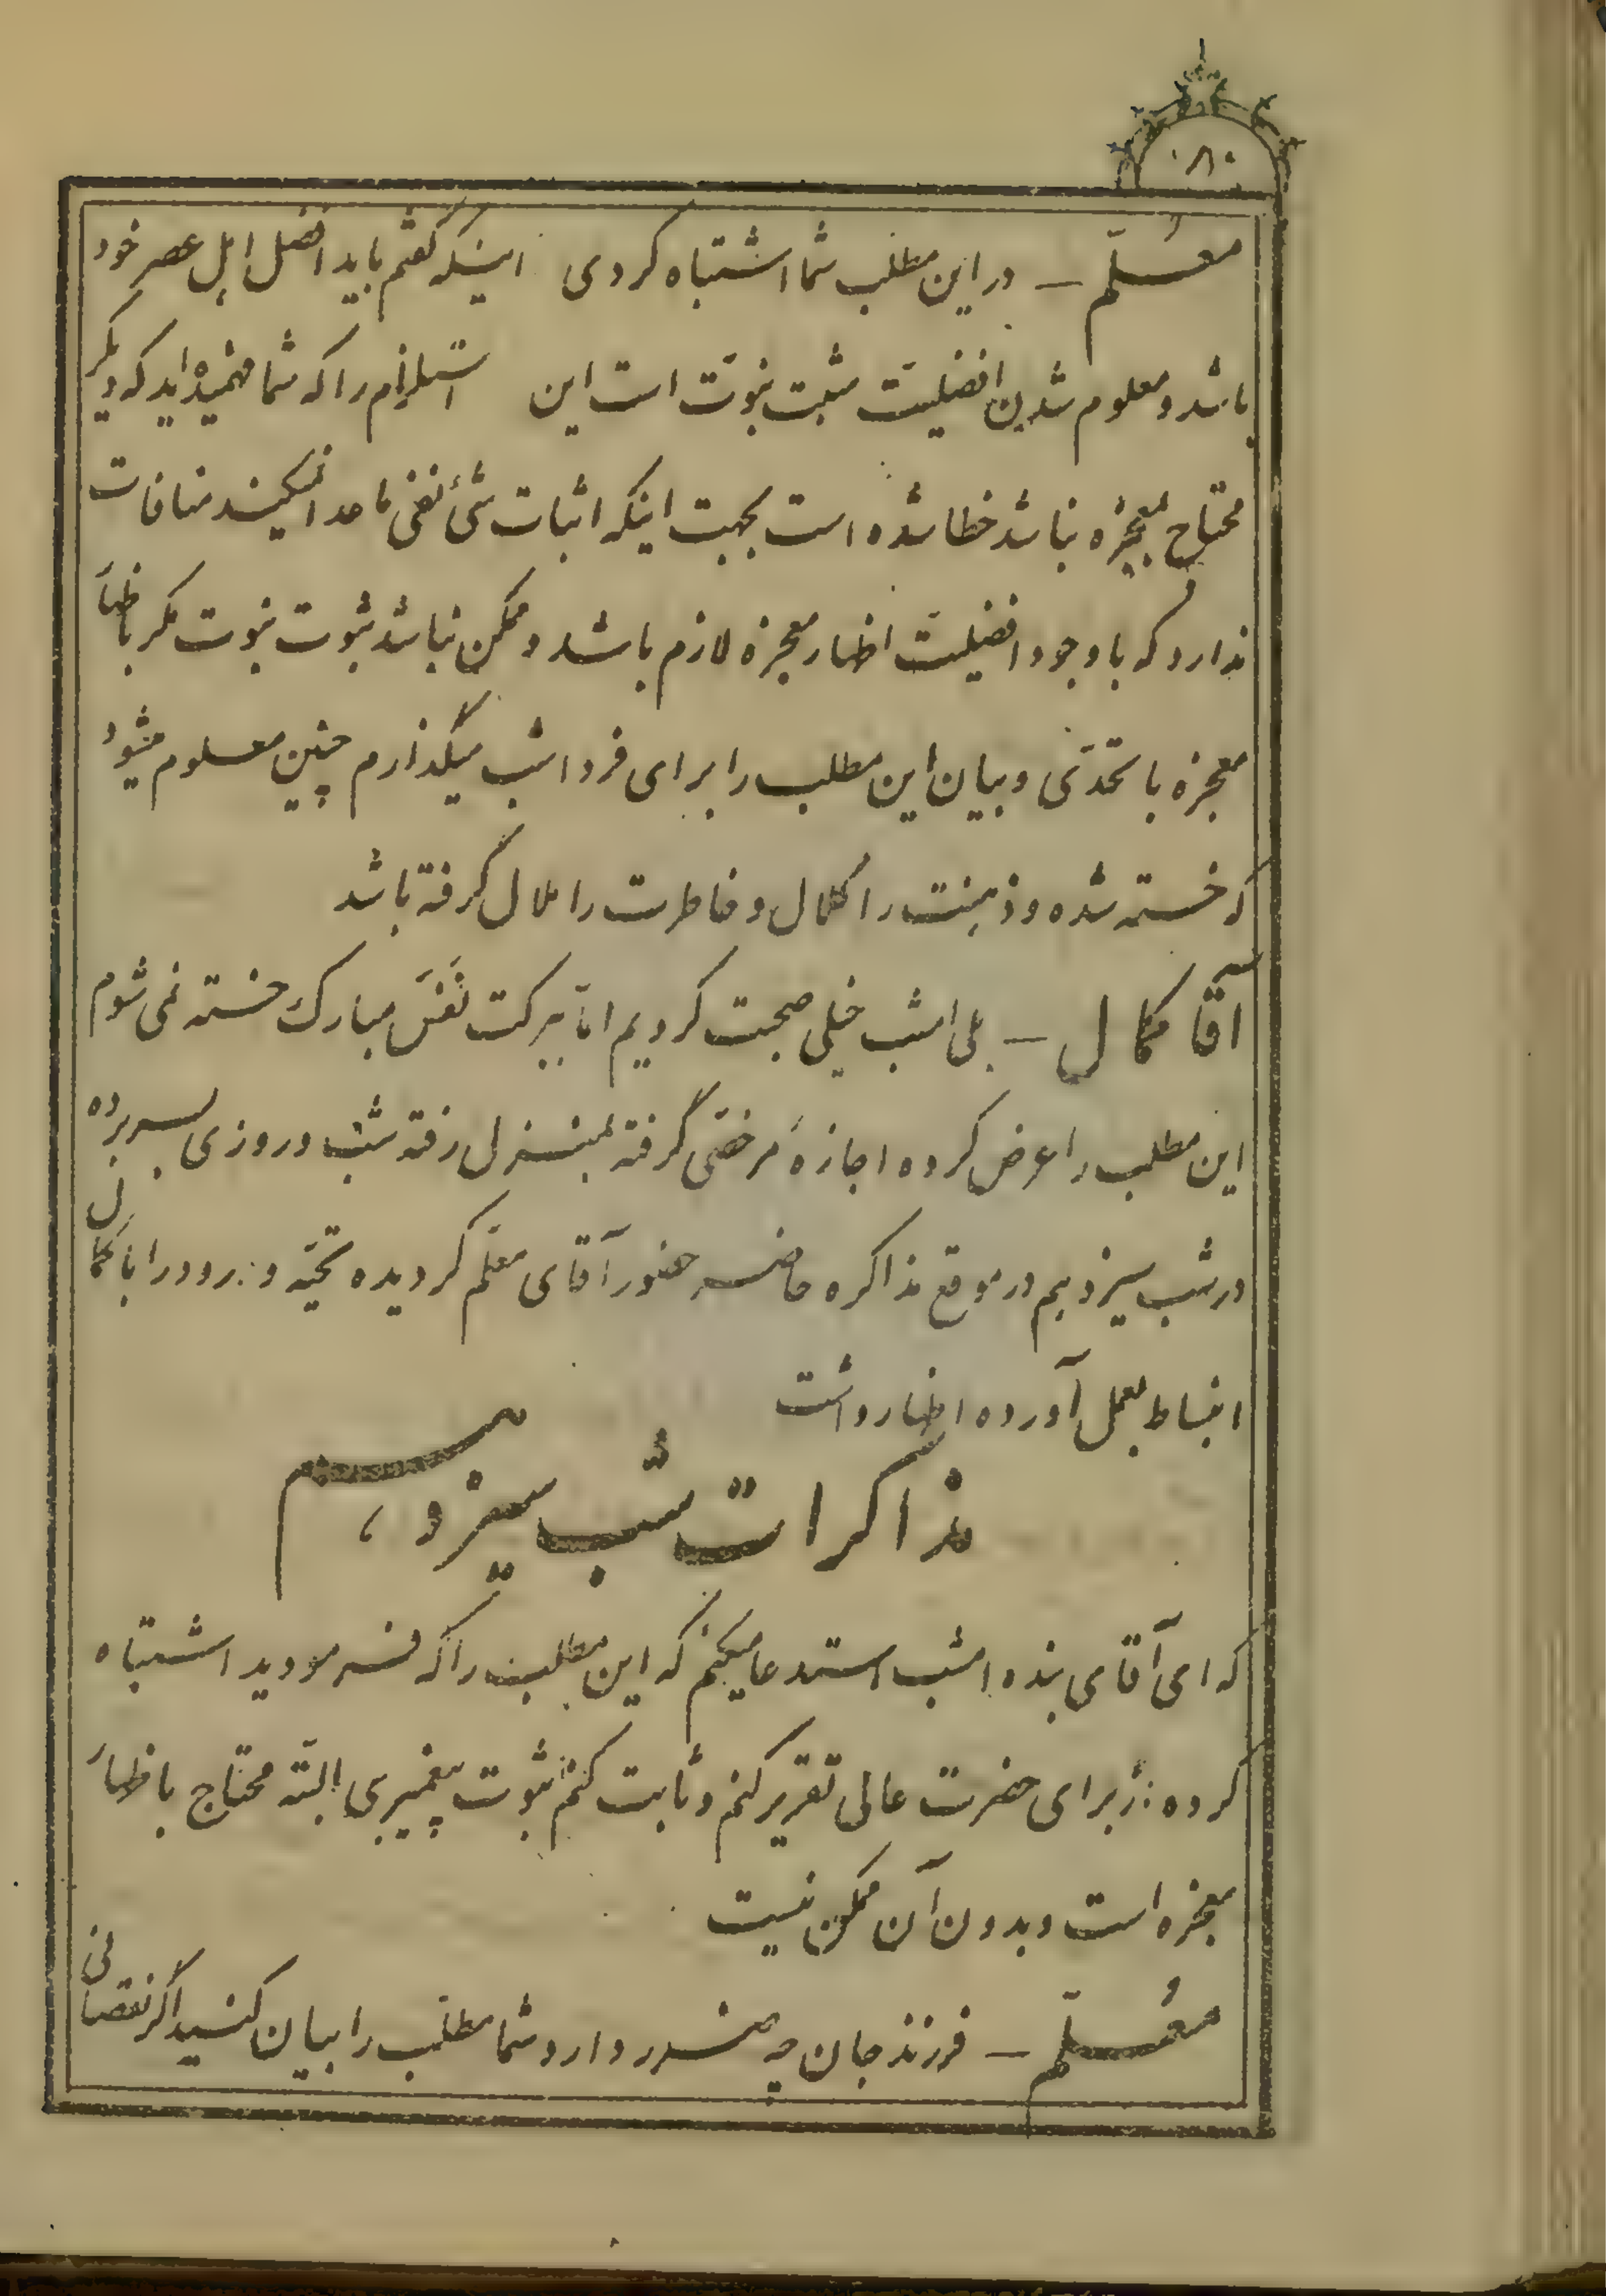 ۸۰
معُلّم – در این مطلب شما اشتباه کردی اینکه گفتم باید افضل اهل عصر خود
باشد و معلوم شدن افضلیّت مثبت نبوّت است این استلزام را که شما فهمیده‌اید که دیگر
محتاج بمعجزه نباشد خطا شده است بجهت اینکه اثبات شئ نفی ماعدا نمیکند منافات
ندارد که با وجود افضلیّت اظهار معجزه لازم باشد و ممکن نباشد ثبوت نبوت مگر باظهار
معجزه با تحدّی و بیان این مطلب را برای فردا شب میگذارم چنین معلوم میشود
که خسته شده و ذهنت را کلال و خاطرت را ملال گرفته باشد
آقا کمال – بلی امشب خیلی صحبت کردیم امّا ببرکت نَفَس مبارک خسته نمی شوم
این مطلب را عرض کرده اجازهٔ مرخصی گرفته بمنزل رفته شب و روزی بسر برده
در شب سیزدهم در موقع مذاکره حاضر حضور آقای معلّم گردیده تحیّه و درود را با کمال
انبساط بعمل آورده اظهار داشت
مذاکرات شب سیزدهم
که ای آقای بنده امشب استدعا میکنم که این مطلب را که فرمودید اشتباه
کرده برای حضرت عالی تقریر کنم و ثابت کنم ثبوت پیغمبری البتّه محتاج باظهار
معجزه است و بدون آن ممکن نیست
معُلّم – فرزند جان چه ضرر دارد شما مطلب را بیان کنید اگر نقصانی